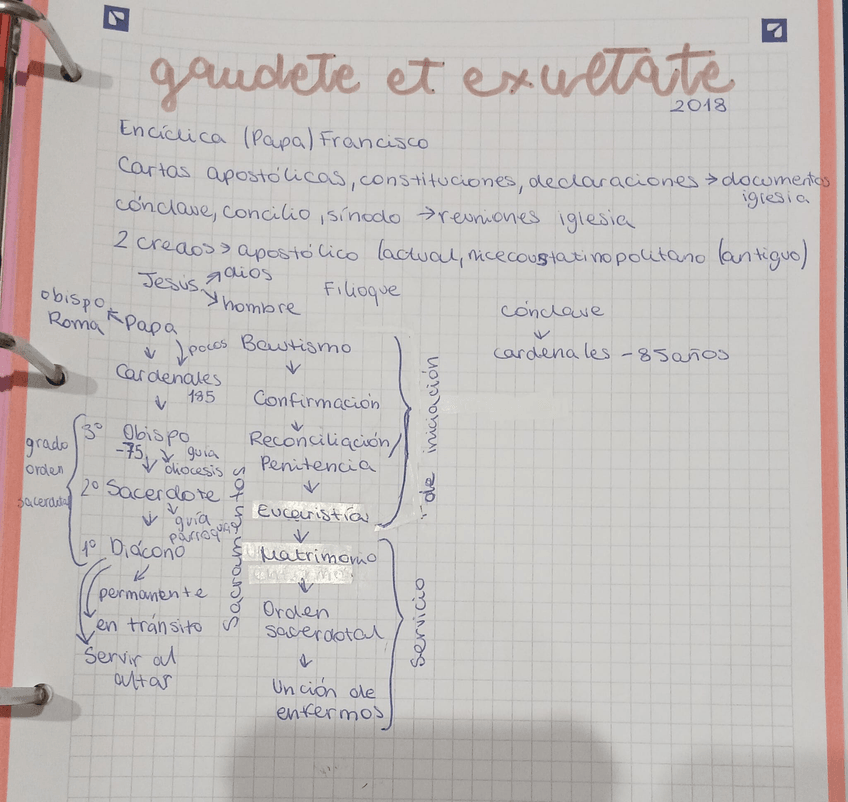 gaudete et exultate
2018
Encíclica (Papa) Francisco
Cartas apostólicas, constituciones, declaraciones → documentos
iglesia
cónclave, concilio, sínodo → reuniones iglesia
2 credos → apostólico (actual, nicecoustatinopolitano (antiguo)
Jesús → dios
→ hombre
Filioque
obispo
Roma ← Papa
↓ ↓ pocos
Cardenales
↓ 185
grado
orden
sacerdotal
3º Obispo
-75 ↓ guía
↓ diócesis
2º Sacerdote
↓ guía
parroquias
1º Diácono
permanente
en tránsito
Servir al
altar
Sacramentos
Bautismo
↓
Confirmación
↓
Reconciliación/
Penitencia
↓
Eucaristía
↓
Matrimonio
↓
Orden
sacerdotal
↓
Unción de
enfermos
de iniciación
servicio
cónclave
↓
cardenales -85años